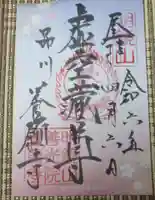 奉拝
令和六年
四月六日
虚空蔵尊
品川
養願寺
明鏡山